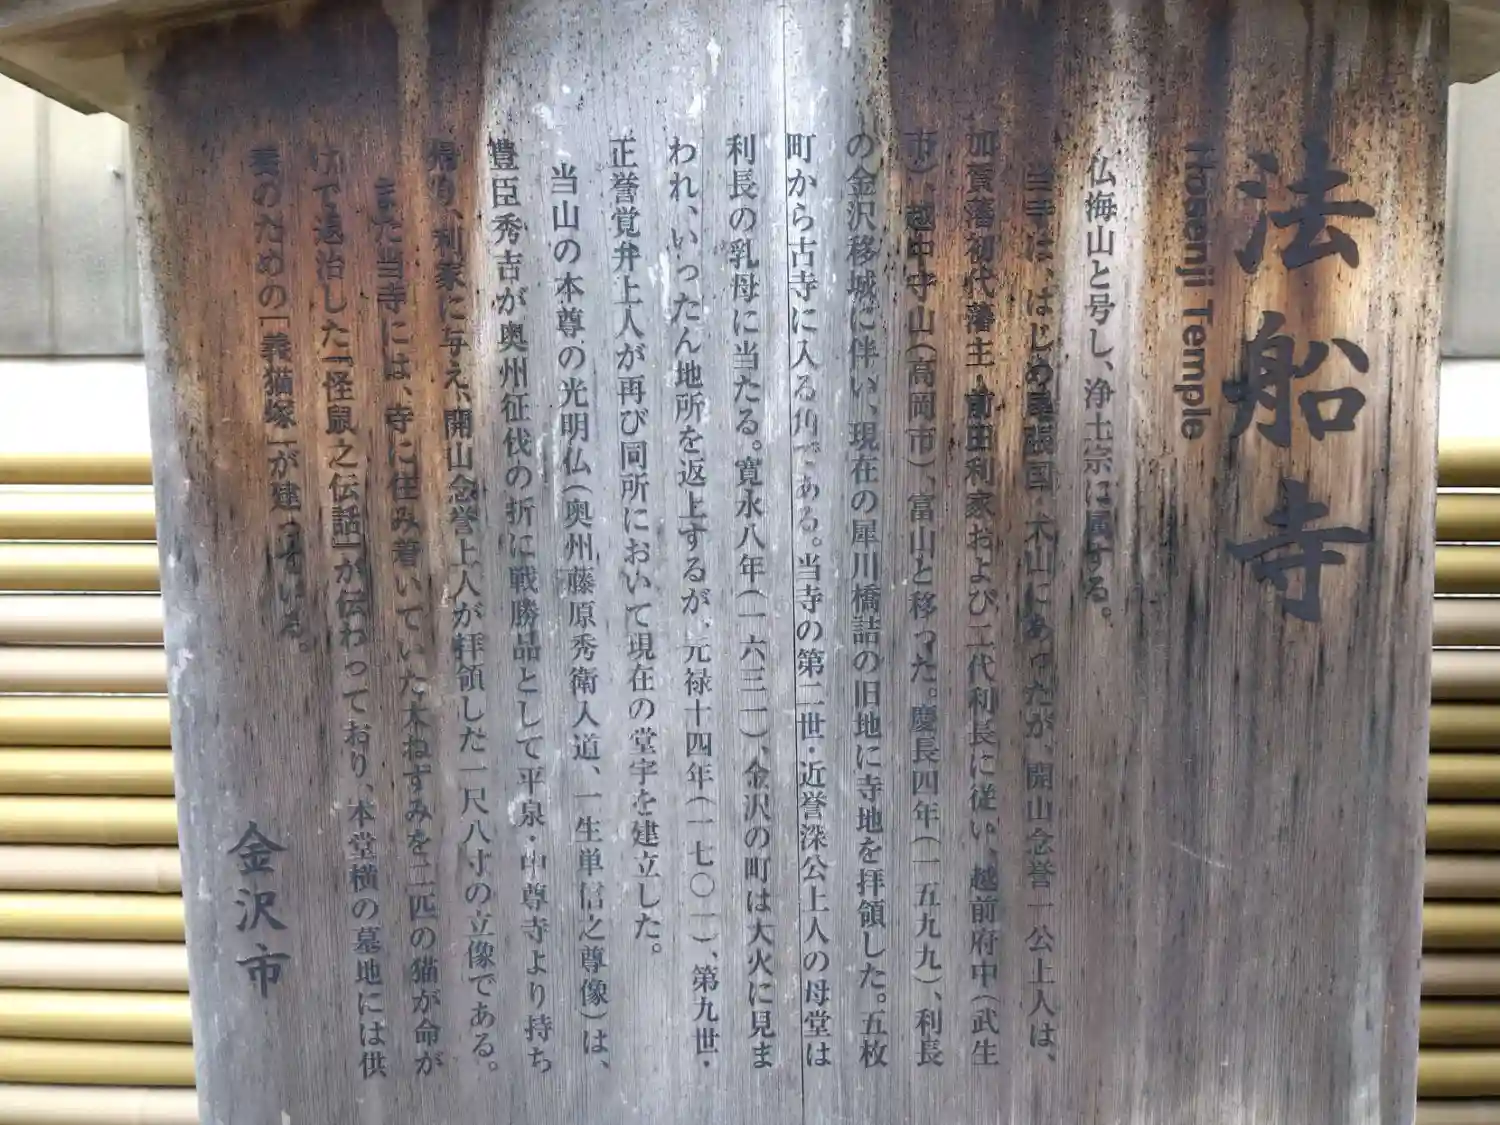 法船寺
Hosenji Temple
仏海山と号し、浄土宗に属する。
当寺は、はじめ尾張国・犬山にあったが、開山念誉一公上人は、
加賀藩初代藩主・前田利家および二代利長に従い、越前府中(武生
市)、越中守山(高岡市)、富山と移った。慶長四年(一五九九)、利長
の金沢移城に伴い、現在の犀川橋詰の旧地に寺地を拝領した。五枚
町から古寺に入る角である。当寺の第二世・近誉深公上人の母堂は
利長の乳母に当たる。寛永八年(一六三一)、金沢の町は大火に見ま
われ、いったん地所を返上するが、元禄十四年(一七〇一)、第九世・
正誉覚弁上人が再び同所において現在の堂宇を建立した。
当山の本尊の光明仏(奥州藤原秀衡入道、一生単信之尊像)は、
豊臣秀吉が奥州征伐の折に戦勝品として平泉・中尊寺より持ち
帰り、利家に与え、開山念誉上人が拝領した一尺八寸の立像である。
また当寺には、寺に住み着いていた大ねずみを二匹の猫が命が
けで退治した「怪鼠之伝話」が伝わっており、本堂横の墓地には供
養のための「義猫塚」が建っている。
金沢市